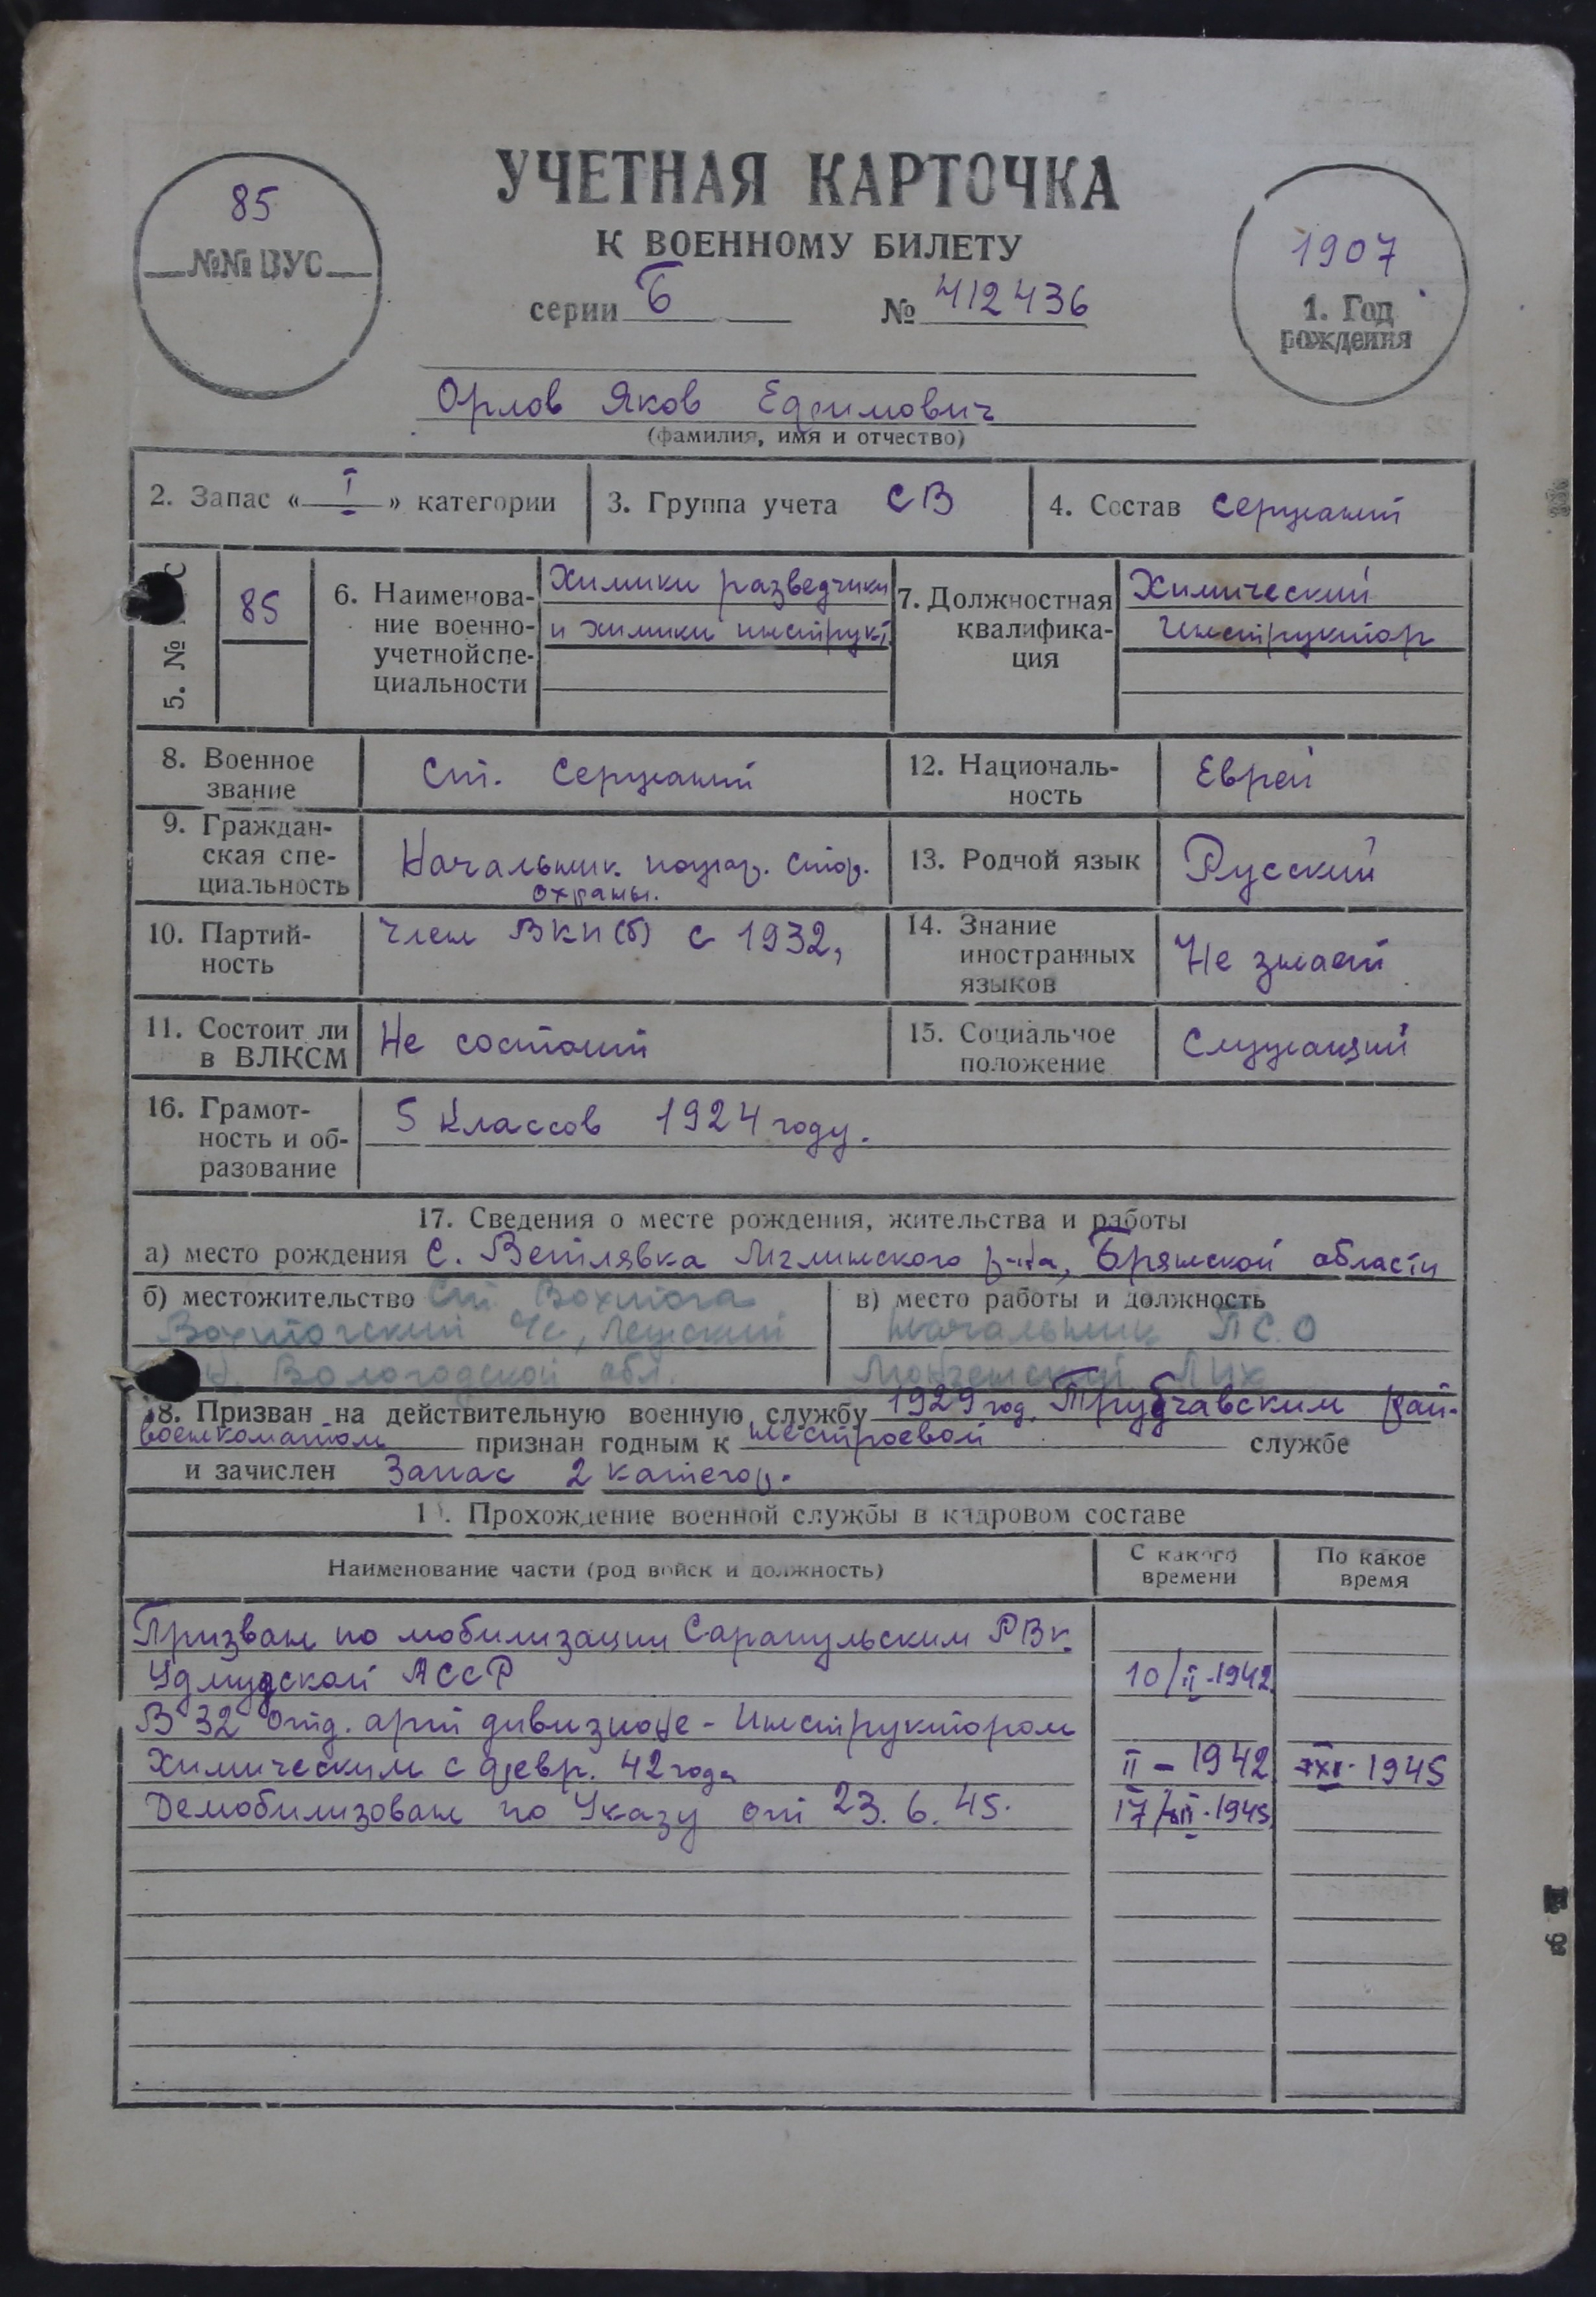 УЧЕТНАЯ КАРТОЧКА
К ВОЕННОМУ БИЛЕТУ
85
№№ ВУС
серии Б № 412436
1907
1. Год
рождения
Орлов Яков Ефимович
(фамилия, имя и отчество)
2. Запас « I » категории
3. Группа учета СВ
4. Состав Сержант
5. № С
85
6. Наименова-
ние военно-
учетной спе-
циальности
Химики разведчики
и химики инструкт
7. Должностная
квалифика-
ция
Химический
Инструктор
8. Военное
звание
Ст. Сержант
12. Националь-
ность
Еврей
9. Граждан-
ская спе-
циальность
Начальник пожар. стор.
охраны.
13. Родной язык
Русский
10. Партий-
ность
Член ВКП(б) с 1932,
14. Знание
иностранных
языков
Не знает
11. Состоит ли
в ВЛКСМ
Не состоит
15. Социальное
положение
Служащий
16. Грамот-
ность и об-
разование
5 Классов 1924 году.
17. Сведения о месте рождения, жительства и работы
а) место рождения С. Ветлявка Мглинского р-на, Брянской области
б) местожительство Ст. Вохтога
Вохтогский
Вологодской обл.
в) место работы и должность
Начальник ПСО
18. Призван на действительную военную службу 1929 год. Трубчавским рай-
военкоматом признан годным к нестроевой службе
и зачислен Запас 2 категор.
1 . Прохождение военной службы в кадровом составе
Наименование части (род войск и должность)
С какого
времени
По какое
время
Призван по мобилизации Сарапульским РВК.
Удмудской АССР 10/II-1942
В 32 отд. арт дивизионе - Инструктором
Химическим с февр. 42 года II - 1942 1945
Демобилизован по Указу от 23.6.45. 17/ 1945